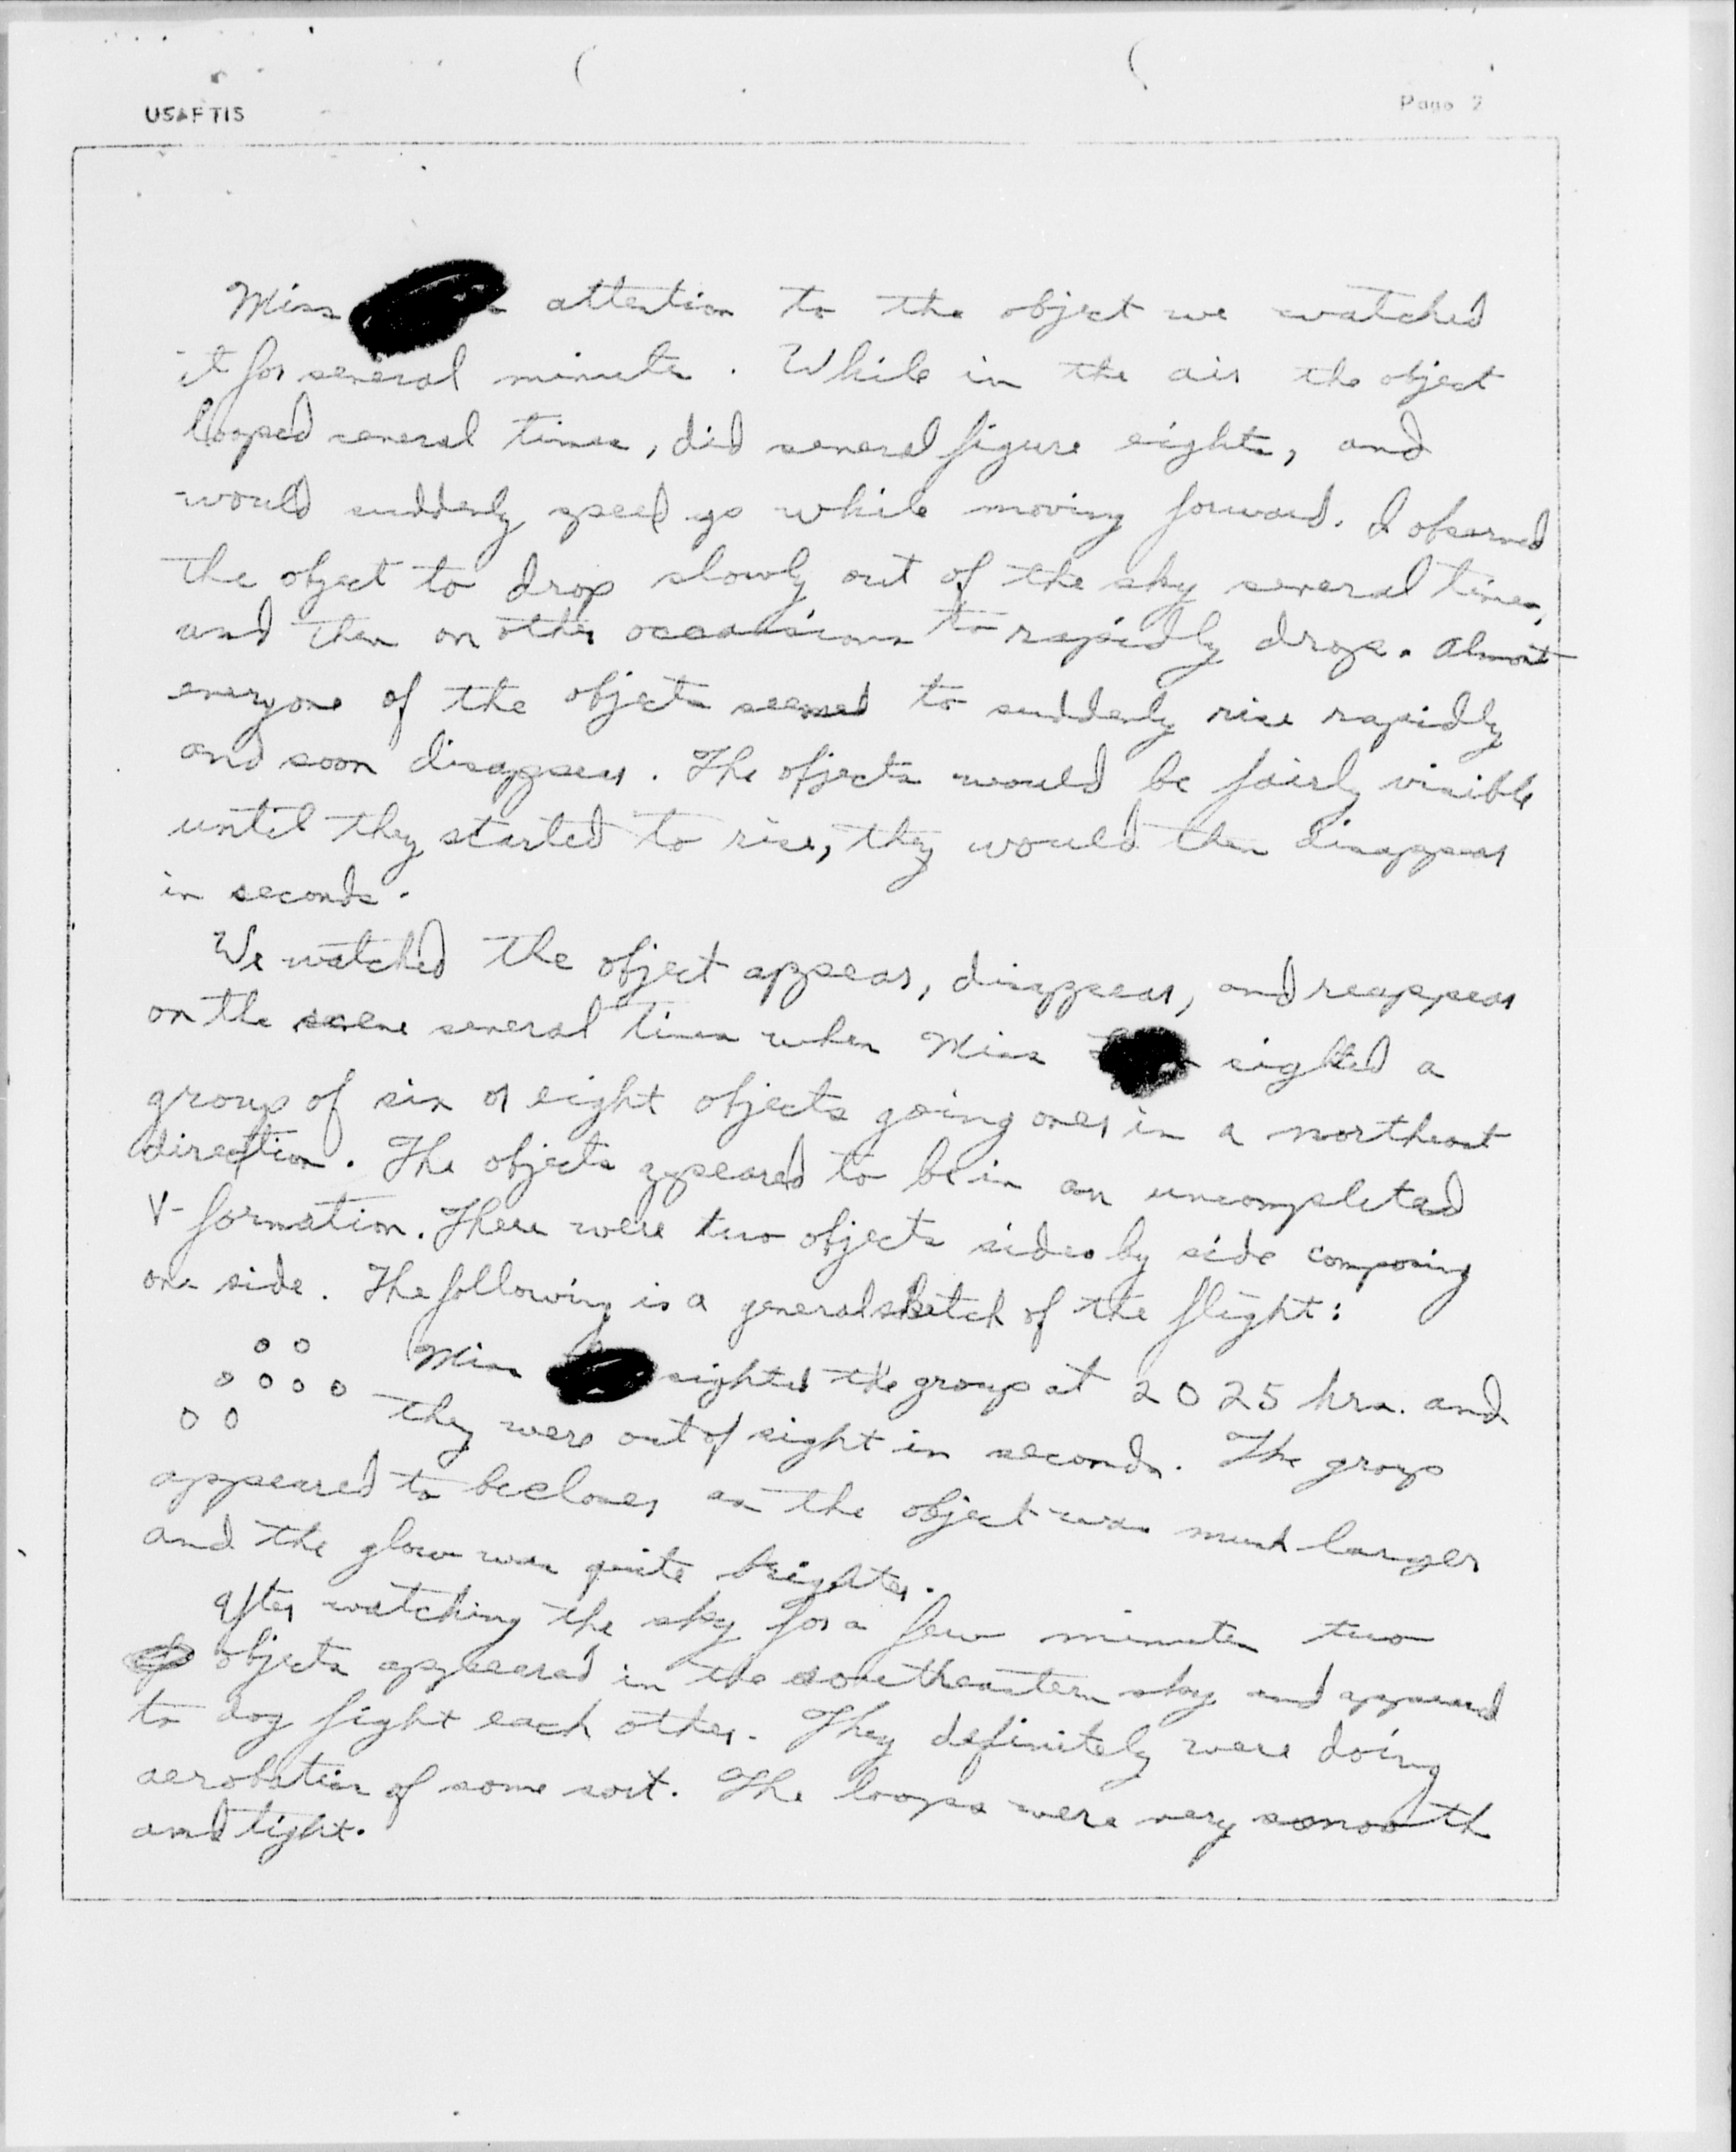 USAFTIS
Page 2
Miss attention to the object we watched
it for several minutes. While in the air the object
looped several times, did several figure eights, and
would suddenly speed up while moving forward. I observed
the object to drop slowly out of the sky several times,
and then on other occassions to rapidly drop. Almost
everyone of the objects seemed to suddenly rise rapidly
and soon disappear. The objects would be fairly visible
until they started to rise, they would then disappear
in seconds.
We watched the object appear, disappear, and reappear
on the scene several times when Miss sighted a
group of six or eight objects going over in a northeast
direction. The objects appeared to be in an uncompleted
V-formation. There were two objects side by side composing
one side. The following is a general sketch of the flight:
Miss sighted the group at 2025 hrs. and
they were out of sight in seconds. The group
appeared to be closer as the object was much larger
and the glow was quite brighter.
After watching the sky for a few minutes two
objects appeared in the southeastern sky and appeared
to dog fight each other. They definitely were doing
aerobatics of some sort. The loops were very smooth
and tight.